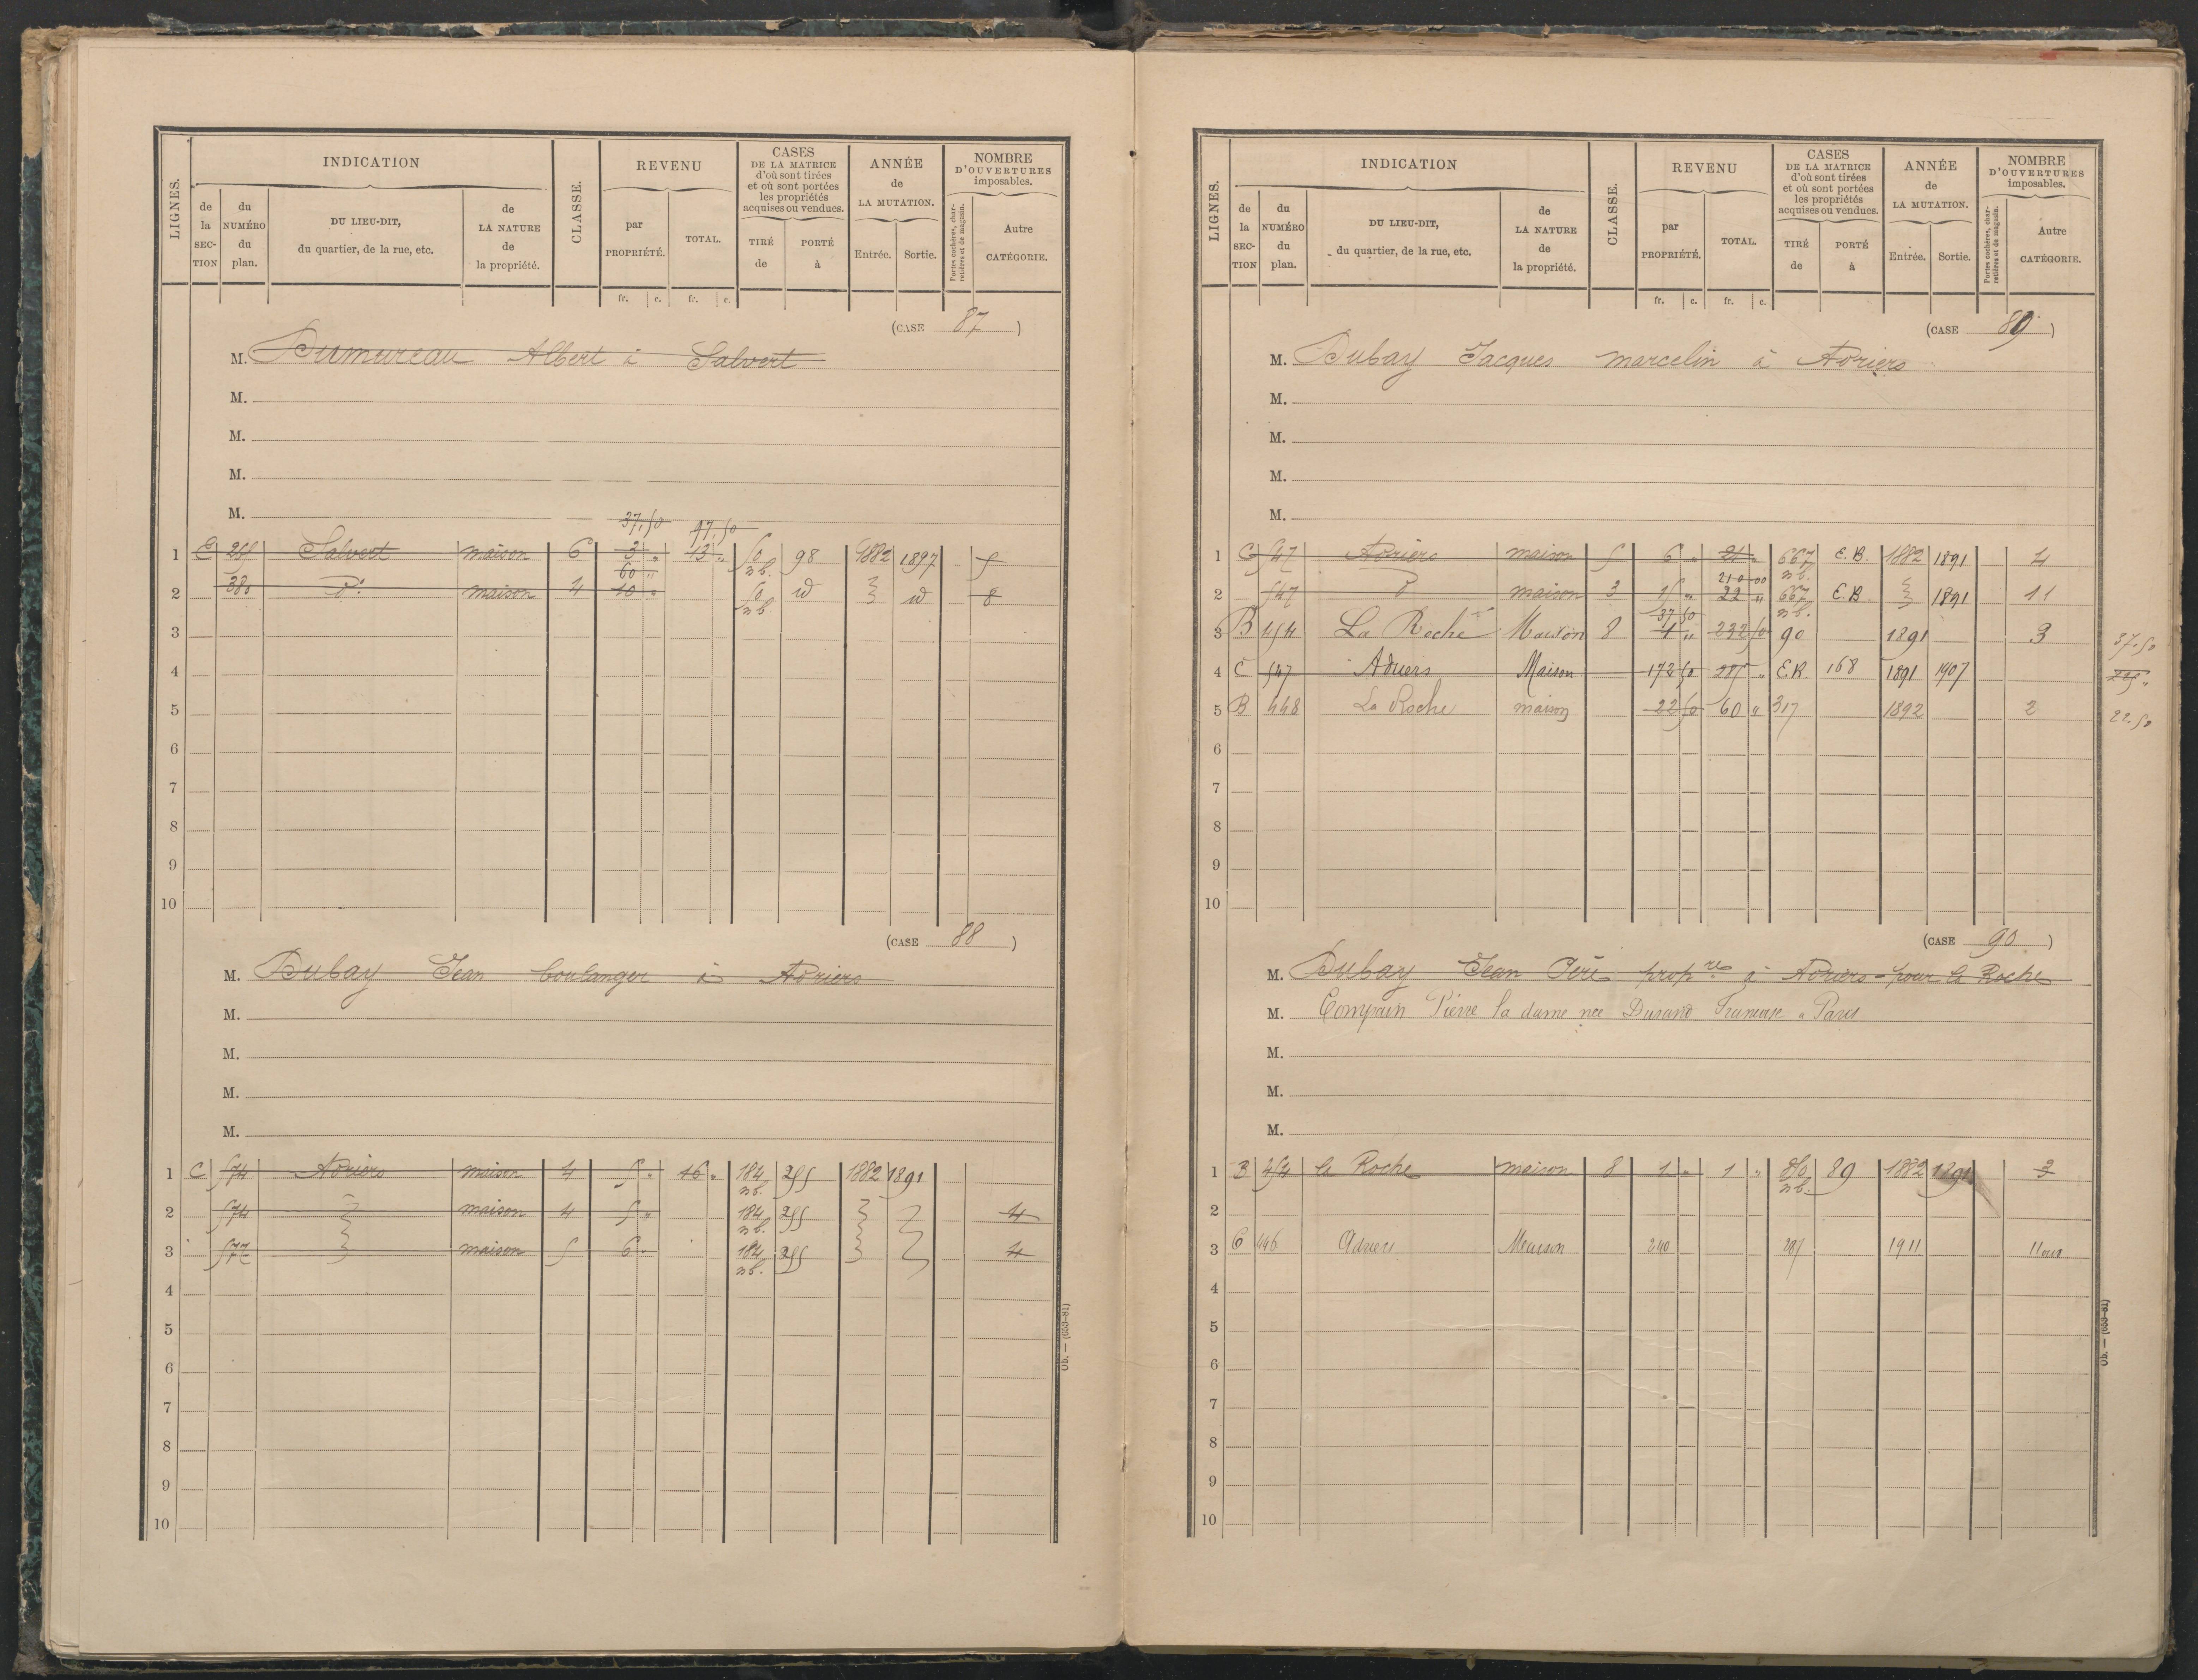 LIGNES. INDICATION CLASSE. REVENU CASES DE LA MATRICE d'où sont tirées et où sont portées les propriétés acquises ou vendues. ANNÉE de LA MUTATION. NOMBRE D'OUVERTURES imposables.
de la SEC-TION du NUMÉRO du plan. DU LIEU-DIT, du quartier, de la rue, etc. de LA NATURE de la propriété. par PROPRIÉTÉ. TOTAL. TIRÉ de PORTÉ à Entrée. Sortie. Portes cochères, charretières et de magasin. Autre CATÉGORIE.
fr. c. fr. c.
(CASE 87 )
M. Dumureau Albert à Salvert
M.
M.
M.
M.
37,50 97,50
1 C Salvert maison 6 3 " 13 " 50 n.b. 98 1882 1897 5
60 "
2 380 d° maison 4 10 " 50 n.b. id id 8
3
4
5
6
7
8
9
10
(CASE 88 )
M. Dubay Jean boulanger à Adriers
M.
M.
M.
M.
1 C 574 Adriers maison 4 5 " 16 " 184 n.b. 255 1882 1891
2 574 maison 4 5 " 184 n.b. 255 4
3 577 maison 5 6 " 184 n.b. 255 4
4
5
6
7
8
9
10
Ob. — (653-81)
LIGNES. INDICATION CLASSE. REVENU CASES DE LA MATRICE d'où sont tirées et où sont portées les propriétés acquises ou vendues. ANNÉE de LA MUTATION. NOMBRE D'OUVERTURES imposables.
de la SEC-TION du NUMÉRO du plan. DU LIEU-DIT, du quartier, de la rue, etc. de LA NATURE de la propriété. par PROPRIÉTÉ. TOTAL. TIRÉ de PORTÉ à Entrée. Sortie. Portes cochères, charretières et de magasin. Autre CATÉGORIE.
fr. c. fr. c.
(CASE 89 )
M. Dubay Jacques marcelin à Adriers
M.
M.
M.
M.
1 C 547 Adriers maison 5 6 " 21 " 667 n.b. E.B. 1882 1891 4
210 00
2 547 d° maison 3 15 " 22 " 667 n.b. E.B. 1891 11
37 50
3 B 454 La Roche Maison 8 1 " 232 50 90 1891 3 37.50
4 C 547 Adriers Maison 172 50 285 " E.B. 168 1891 1907
5 B 448 La Roche maison 22 50 60 " 317 1892 2 22.50
6
7
8
9
10
(CASE 90 )
M. Dubay Jean Père prop.re à Adriers - pour la Roche
M. Compain Pierre la dame née Durand à Paris
M.
M.
M.
1 B 454 la Roche maison 8 1 " 1 " n.b. 89 1882 1891 3
2
3 C 446 Adriers Maison 240 297 1911
4
5
6
7
8
9
10
Ob. — (653-81)